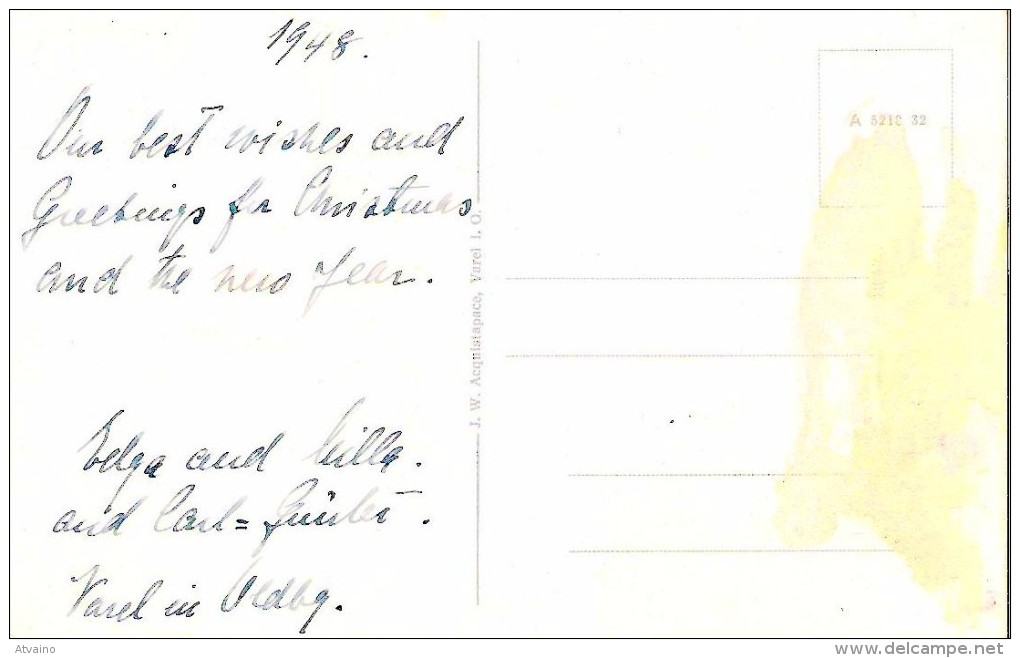 1948.
Our best wishes and
Greetings for Christmas
and the new Year.
and
and Carl=Günter.
Varel in Oldbg.
J. W. Acquistapace, Varel i. O.
A 32
Atvaino
delcampe.net